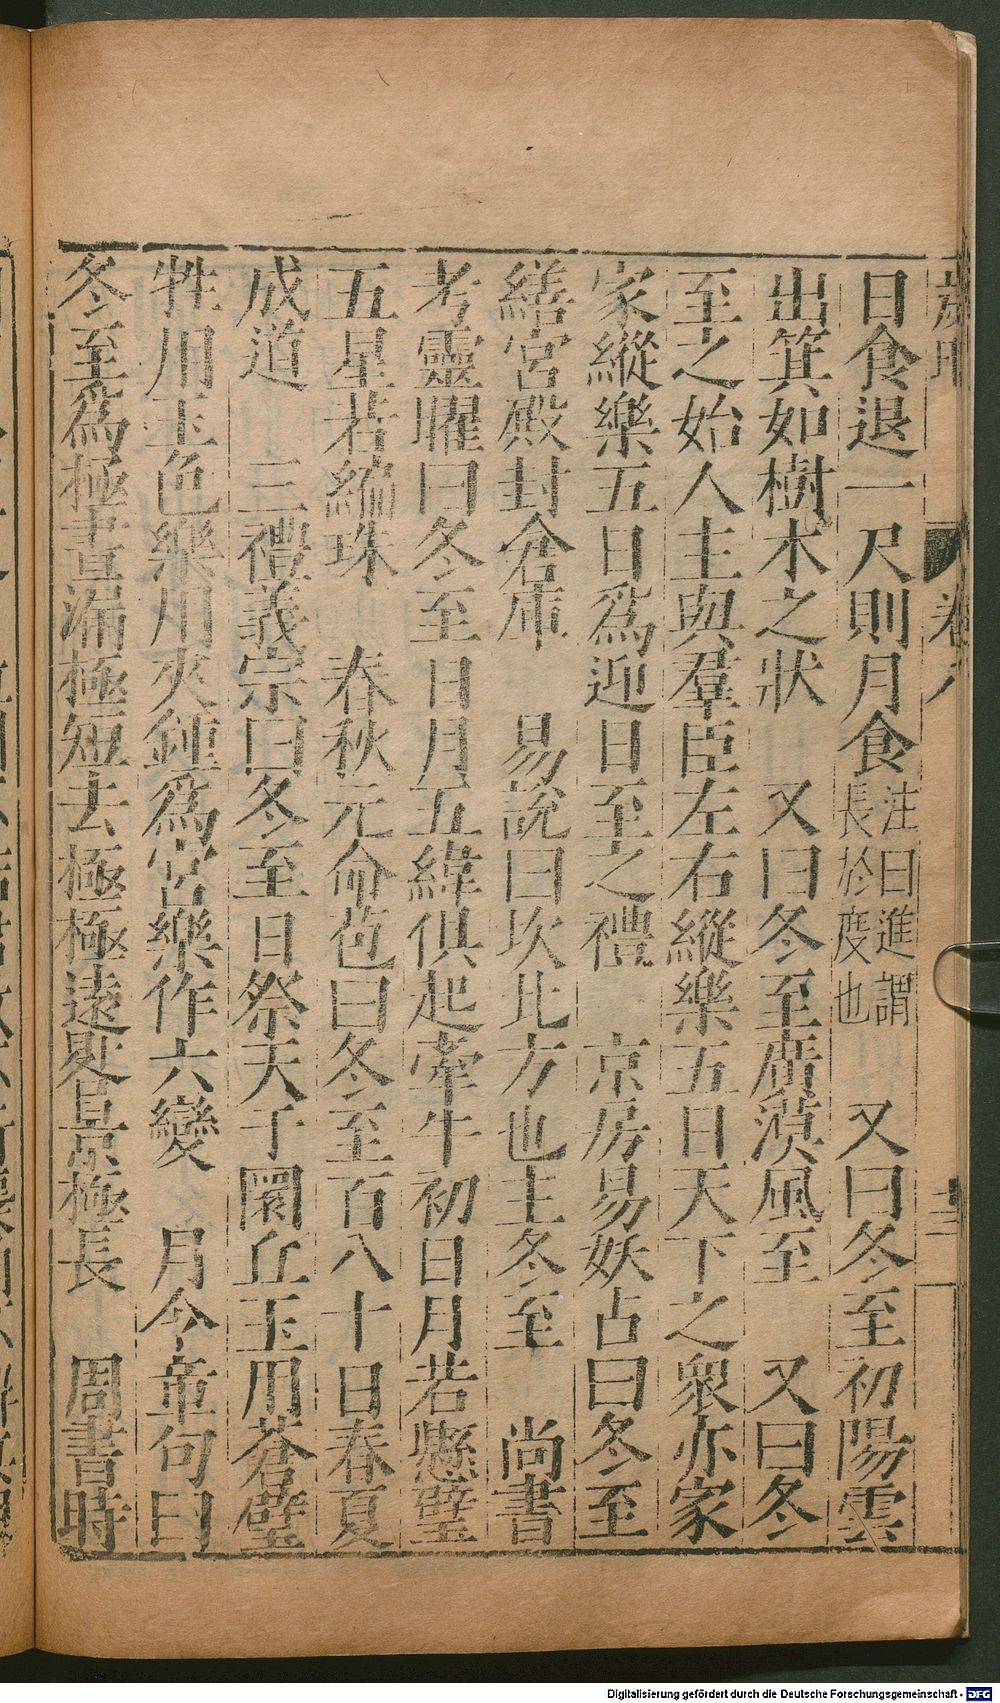 日食退一尺則月食注曰進謂長於度也 又曰冬至初陽雲
出箕如樹木之狀 又曰冬至廣漠風至 又曰冬
至之始人主與羣臣左右縱樂五日天下之衆亦家
家縱樂五日爲迎日至之禮 京房易妖占曰冬至
繕宮殿封倉庫 易說曰坎北方也主冬至 尚書
考靈曜曰冬至日月五緯俱起牽牛初日月若懸璧
五星若編珠 春秋元命苞曰冬至百八十日春夏
成道 三禮義宗曰冬至日祭天于圜丘玉用蒼璧
牲用玉色樂用夾鍾爲宮樂作六變 月令章句曰
冬至爲極晝漏極短去極極遠晷景極長 周書時
卷八
Digitalisierung gefördert durch die Deutsche Forschungsgemeinschaft - DFG